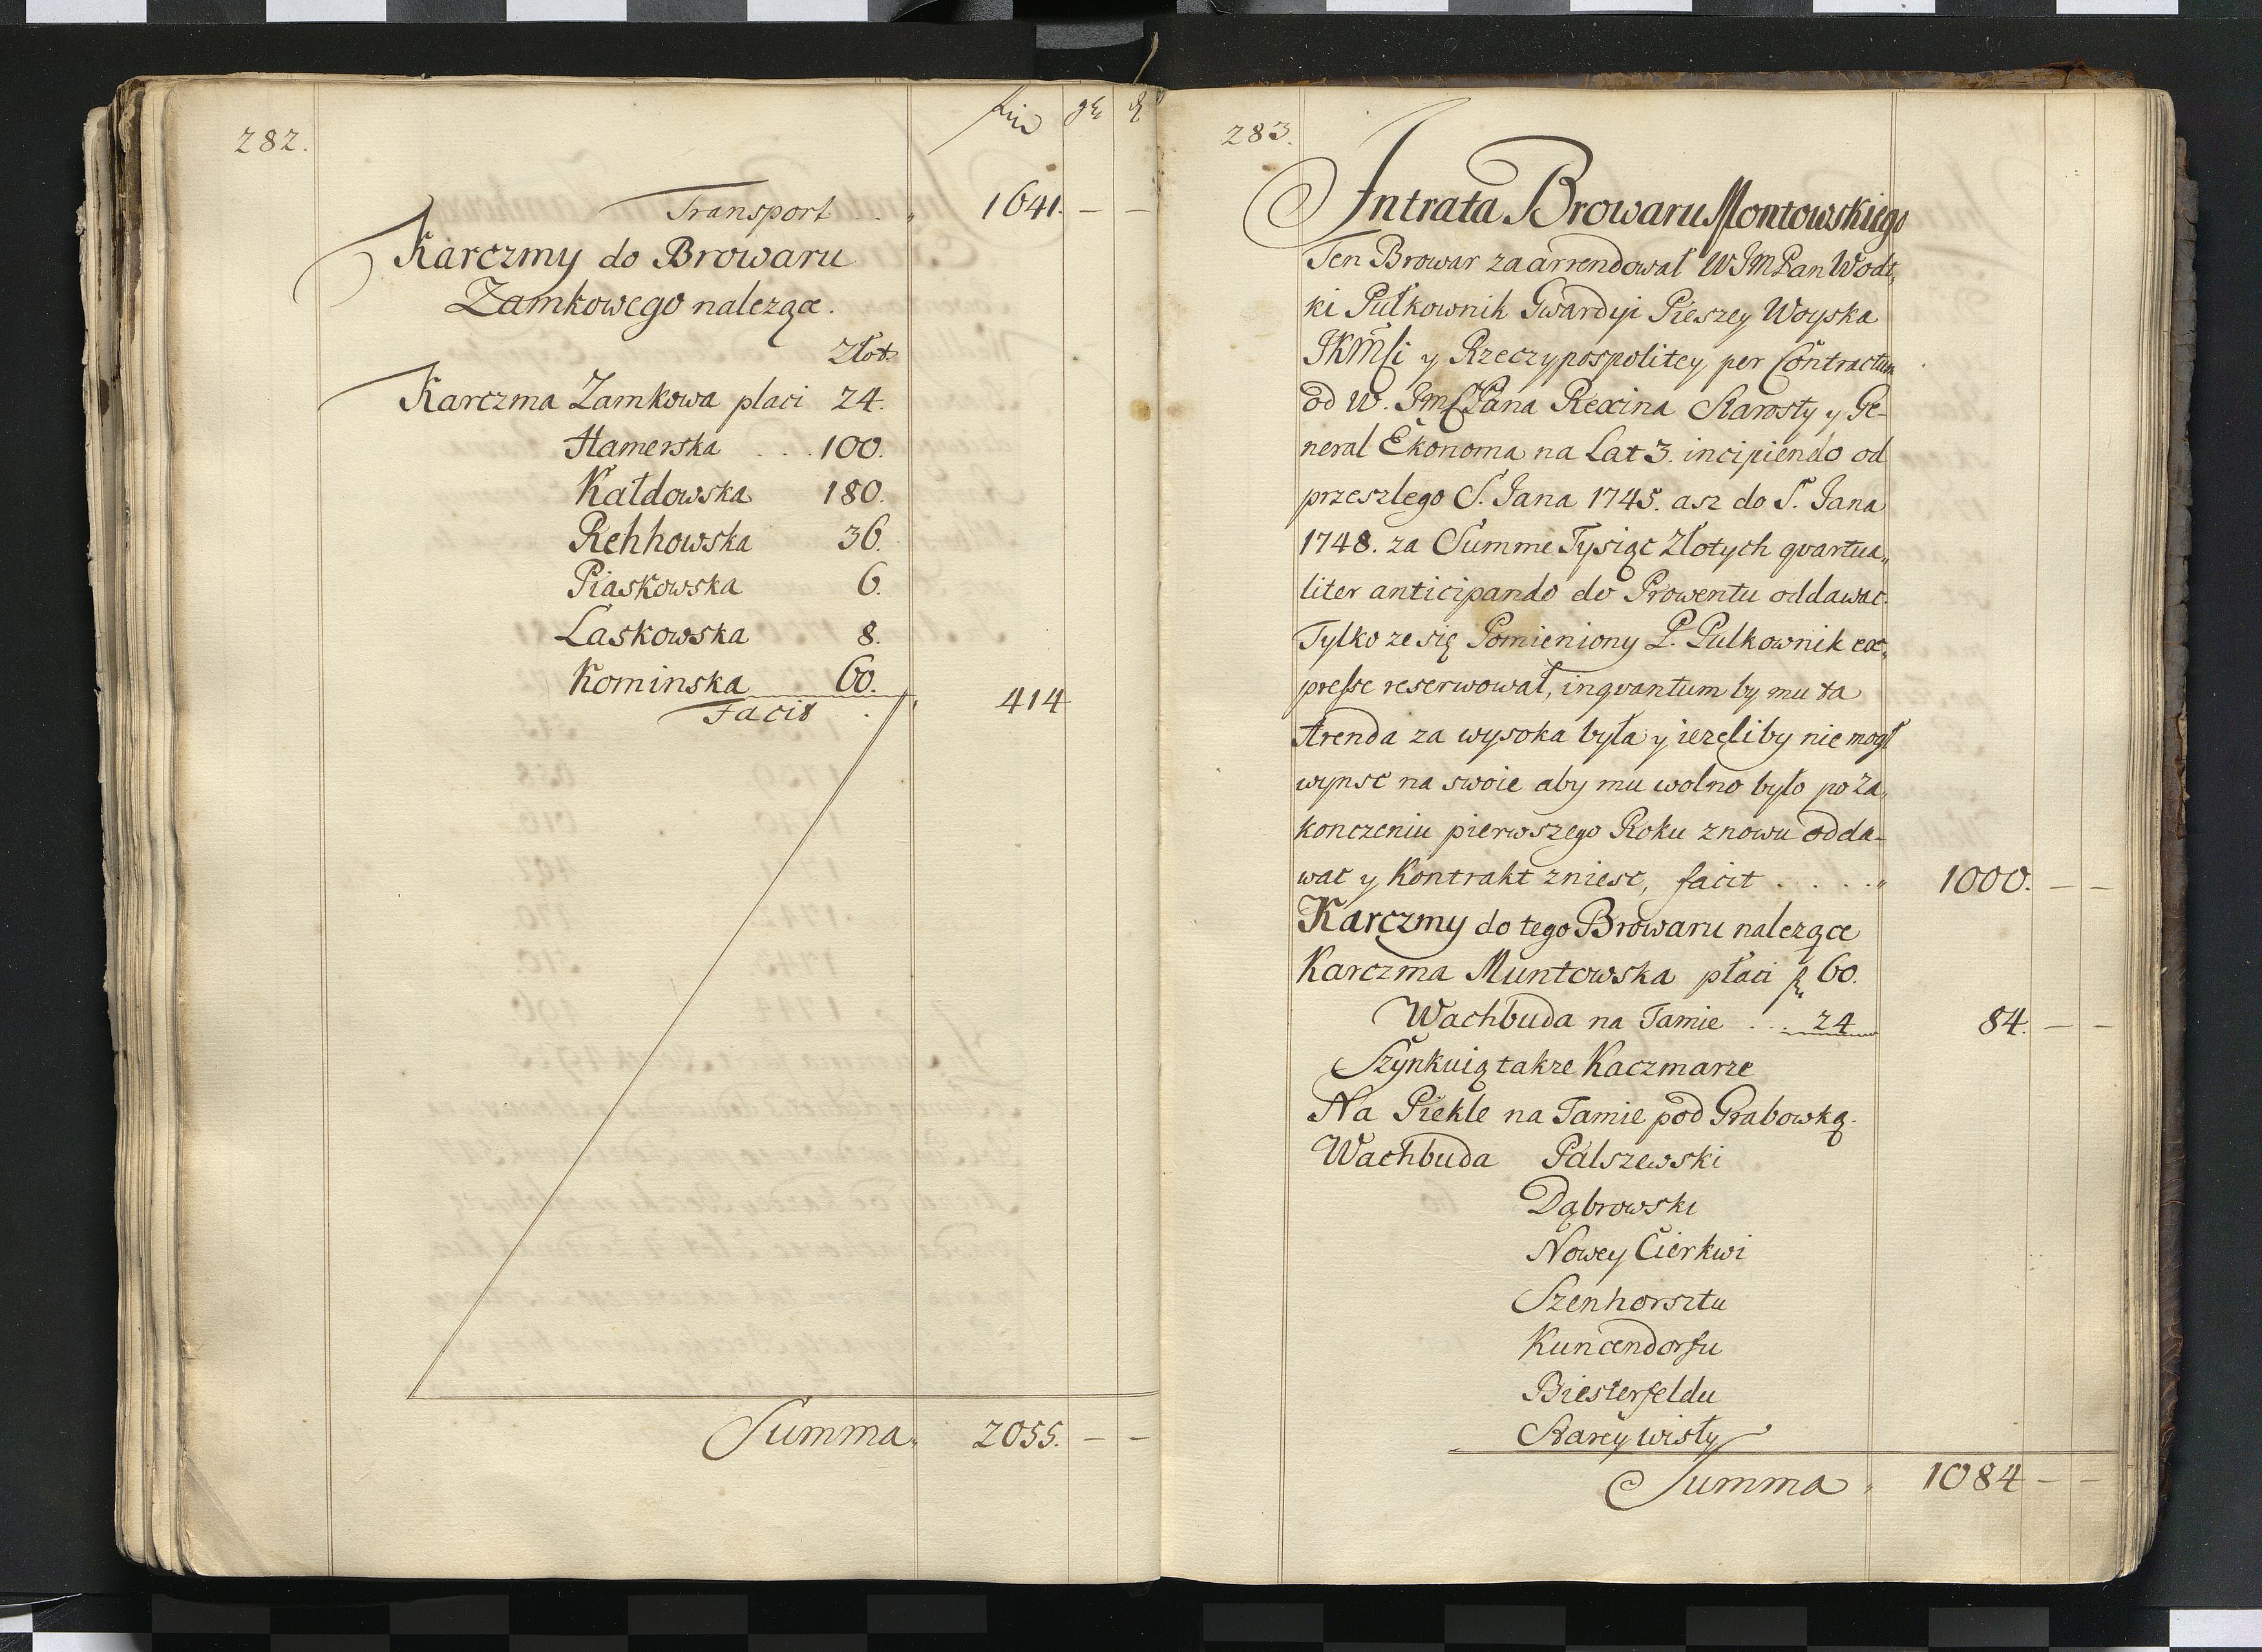 282.
gr
Transport 1641. — —
Karczmy do Browaru
Zamkowego nalezące.
Złot.
Karczma Zamkowa placi 24.
Hamerska . . . 100.
Kałdowska 180.
Rehhowska 36.
Piaskowska 6.
Laskowska 8.
Kominska 60.
Facit . 414
Summa 2055. — —
283.
Intrata Browaru Montowskiego
Ten Browar zaarrendował WJMPan Wodt,,
ki Pułkownik Gwardyi Pieszey Woyska
JKMSi y Rzeczypospolitey per Contractum
od W. JmSPana Rexina Starosty y Ge-
neral Ekonoma na Lat 3. incipiendo od
przeszlego S. Jana 1745. asz do S. Jana
1748. za Summe Tysiąc Złotych qvartua,,
liter anticipando do Prowentu oddawac.
Tylko ze się Pomieniony P. Pulkownik ex,,
presse reserwował, inqvantum by mu ta
Arenda za wysoka była y iezęliby nie mogł
wynsc na swoie aby mu wolno było po za,,
konczeniu pierwszego Roku znowu odda-
wac y Kontrakt zniesc, facit . . . . . 1000. — —
Karczmy do tego Browaru nalezące
Karczma Muntowska płaci f 60.
Wachbuda na Tamie . . . 24 84. — —
Szynkuią takze Kaczmarze
Na Piekle na Tamie pod Grabowką.
Wachbuda Palszewski
Dąbrowski
Nowey Cierkwi
Szenhorsztu
Kuncendorfu
Biesterfeldu
Starey wisły
Summa 1084 — —